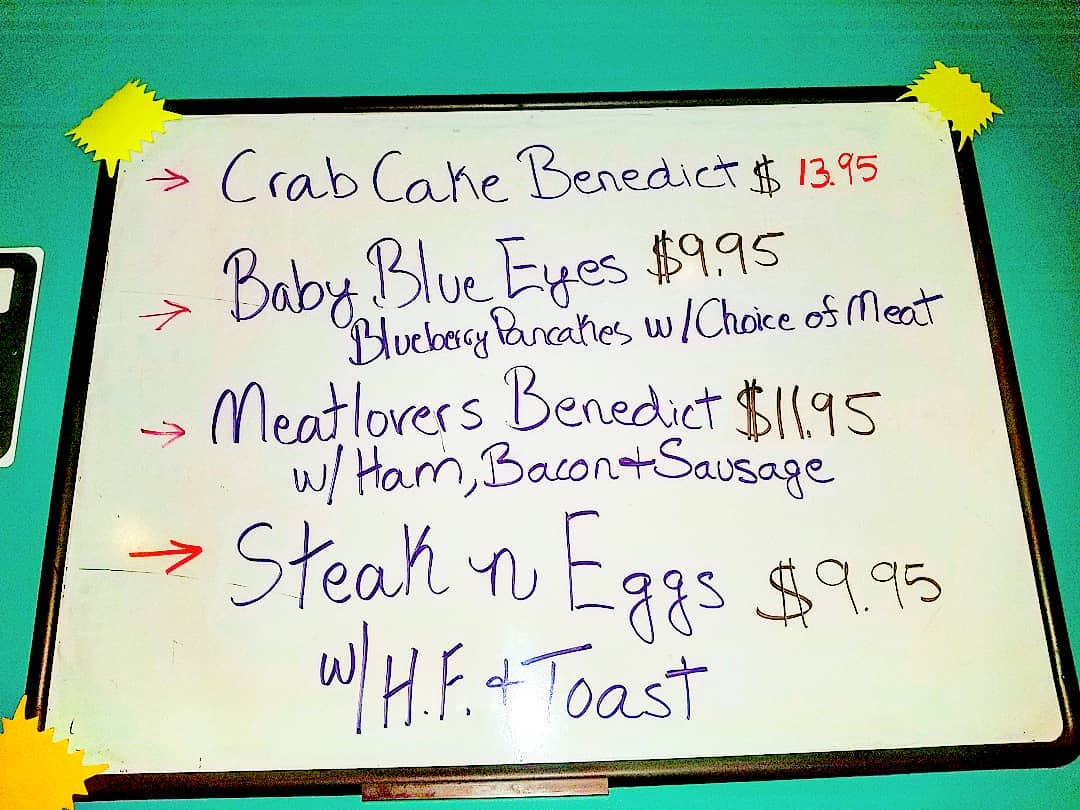 → Crab Cake Benedict $ 13.95
→ Baby Blue Eyes $9.95
Blueberry Pancakes w/Choice of Meat
→ Meatlovers Benedict $11.95
w/ Ham, Bacon + Sausage
→ Steak n Eggs $9.95
w/ H.F. + Toast